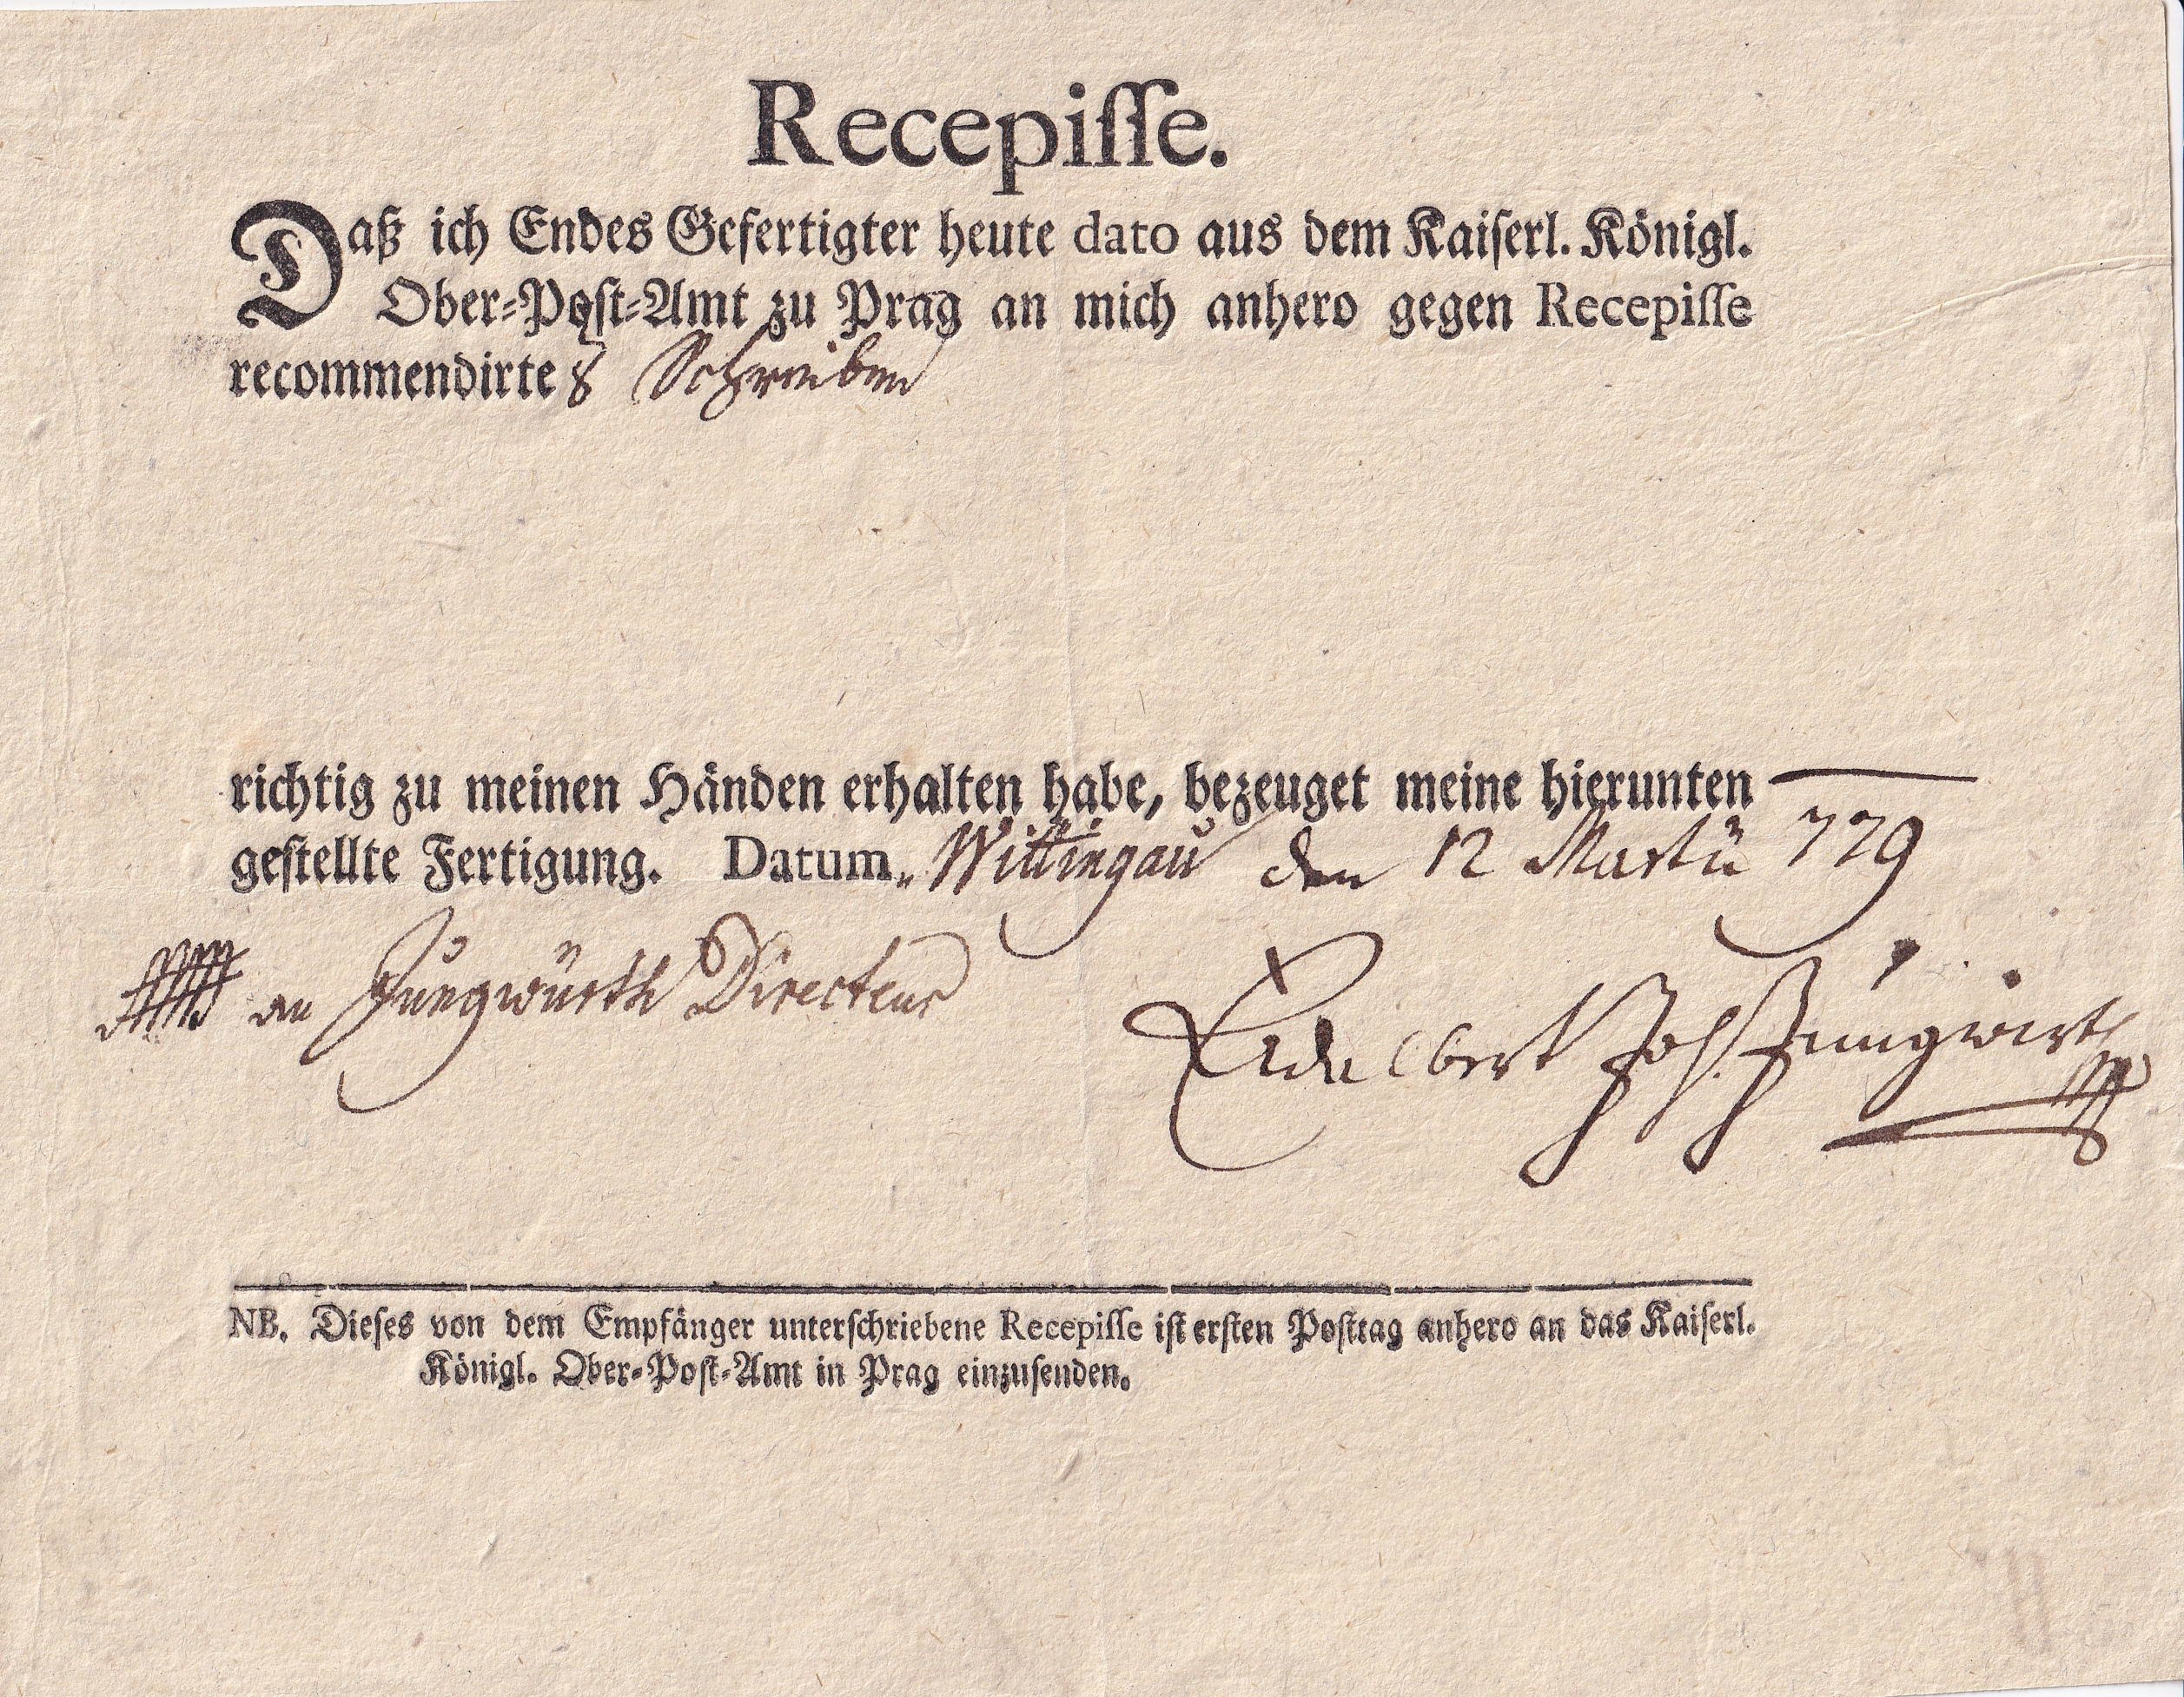 Recepiſſe.
Daß ich Endes Gefertigter heute dato aus dem Kaiſerl. Königl.
Ober-Poſt-Amt zu Prag an mich anhero gegen Recepiſſe
recommendirtes Schreiben
richtig zu meinen Händen erhalten habe, bezeuget meine hierunten
geſtellte Fertigung. Datum Wittingau den 12 Martii 779
an Jungwürth Directeur
Adalbert Joh. Jungwirth
NB. Dieſes von dem Empfänger unterſchriebene Recepiſſe iſt erſten Poſttag anhero an das Kaiſerl.
Königl. Ober-Poſt-Amt in Prag einzuſenden.